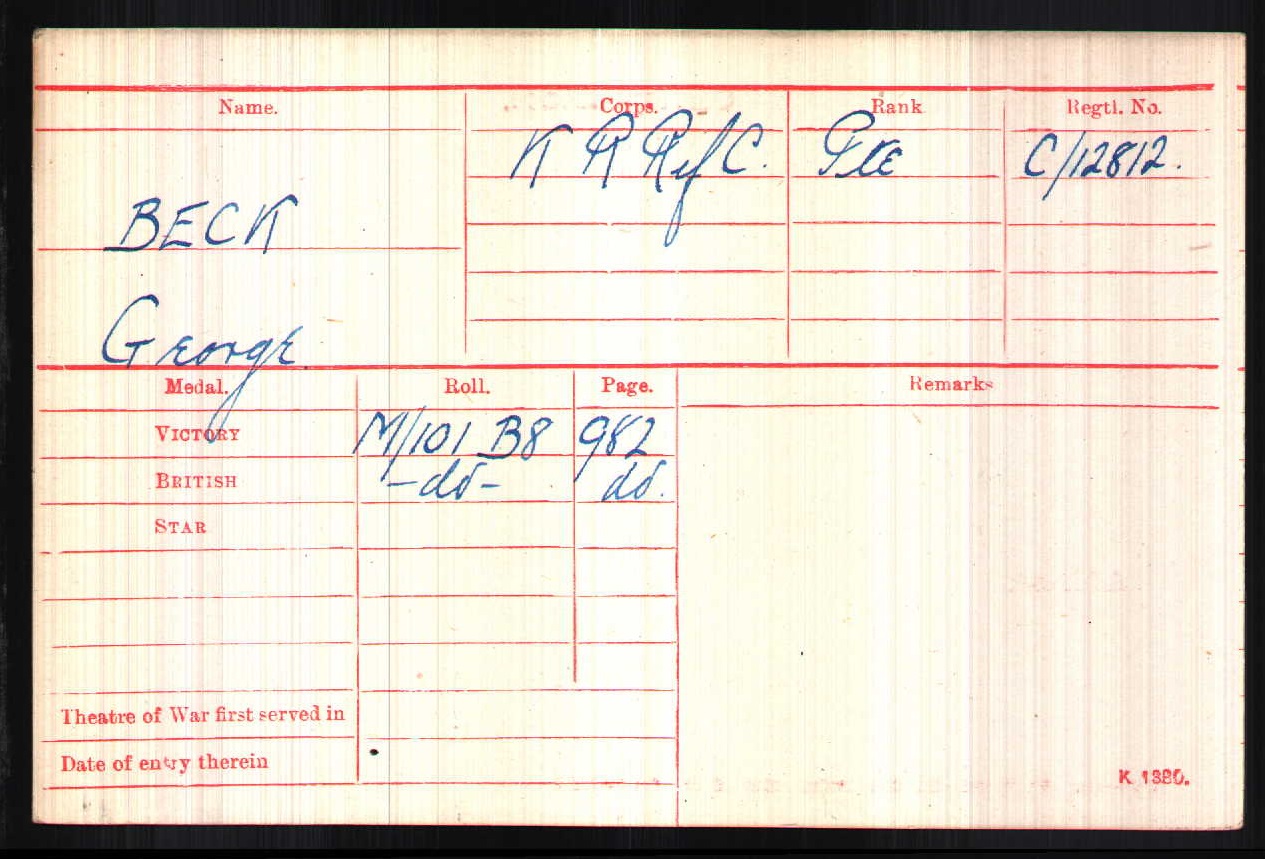 Name. Corps. Rank Regtl. No.
K R Rif C. Pte C/12812.
BECK
George
Medal. Roll. Page. Remarks
VICTORY M/101 B8 982
BRITISH -do- do.
STAR
Theatre of War first served in
Date of entry therein
K 1380.